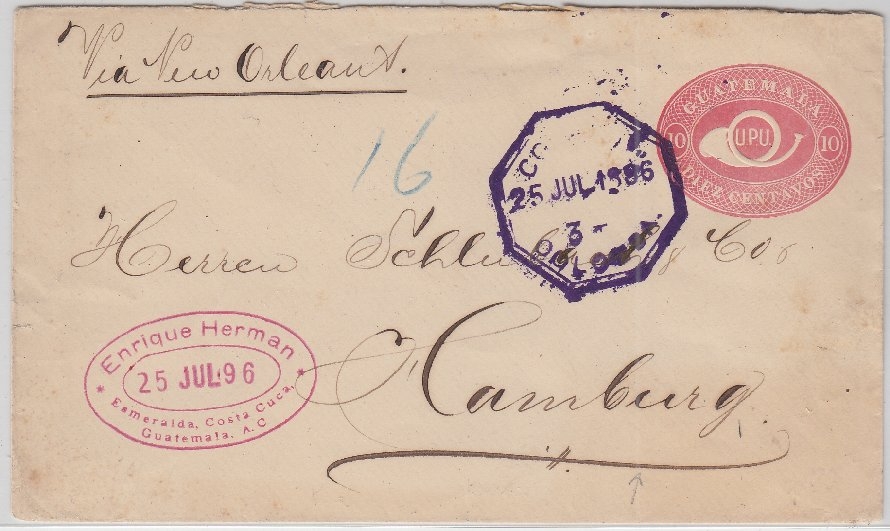 Via New Orleans.
GUATEMALA
10 UPU. 10
DIEZ CENTAVOS
16
25 JUL 1896
3
Herren & Co
Enrique Herman
25 JUL 96
Esmeralda, Costa Cuca,
Guatemala, A.C
Hamburg